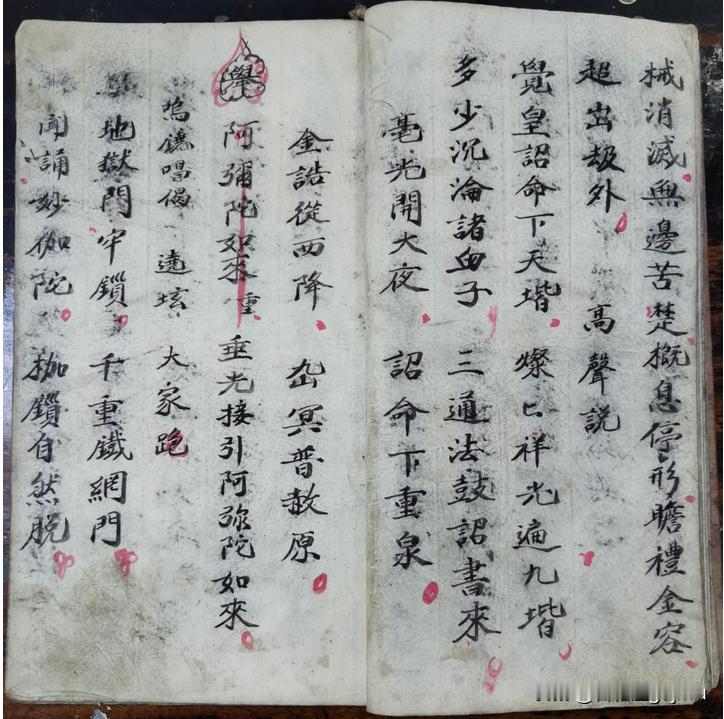 械消滅無邊苦楚概息停形瞻禮金容
超出劫外 高聲説
覺皇詔命下天堦 燦〻祥光遍九堦
多少沉淪諸血子 三通法鼓詔書來
毫光開大夜 詔命下重泉
金誥從西降 冥普赦原
舉 阿彌陀如來重 垂光接引阿弥陀如來
鳴鐃唱偈 遶坛 大家跪
地獄門牢鎖 千重鐵網門
聞誦妙伽陀 枷鎖自然脫